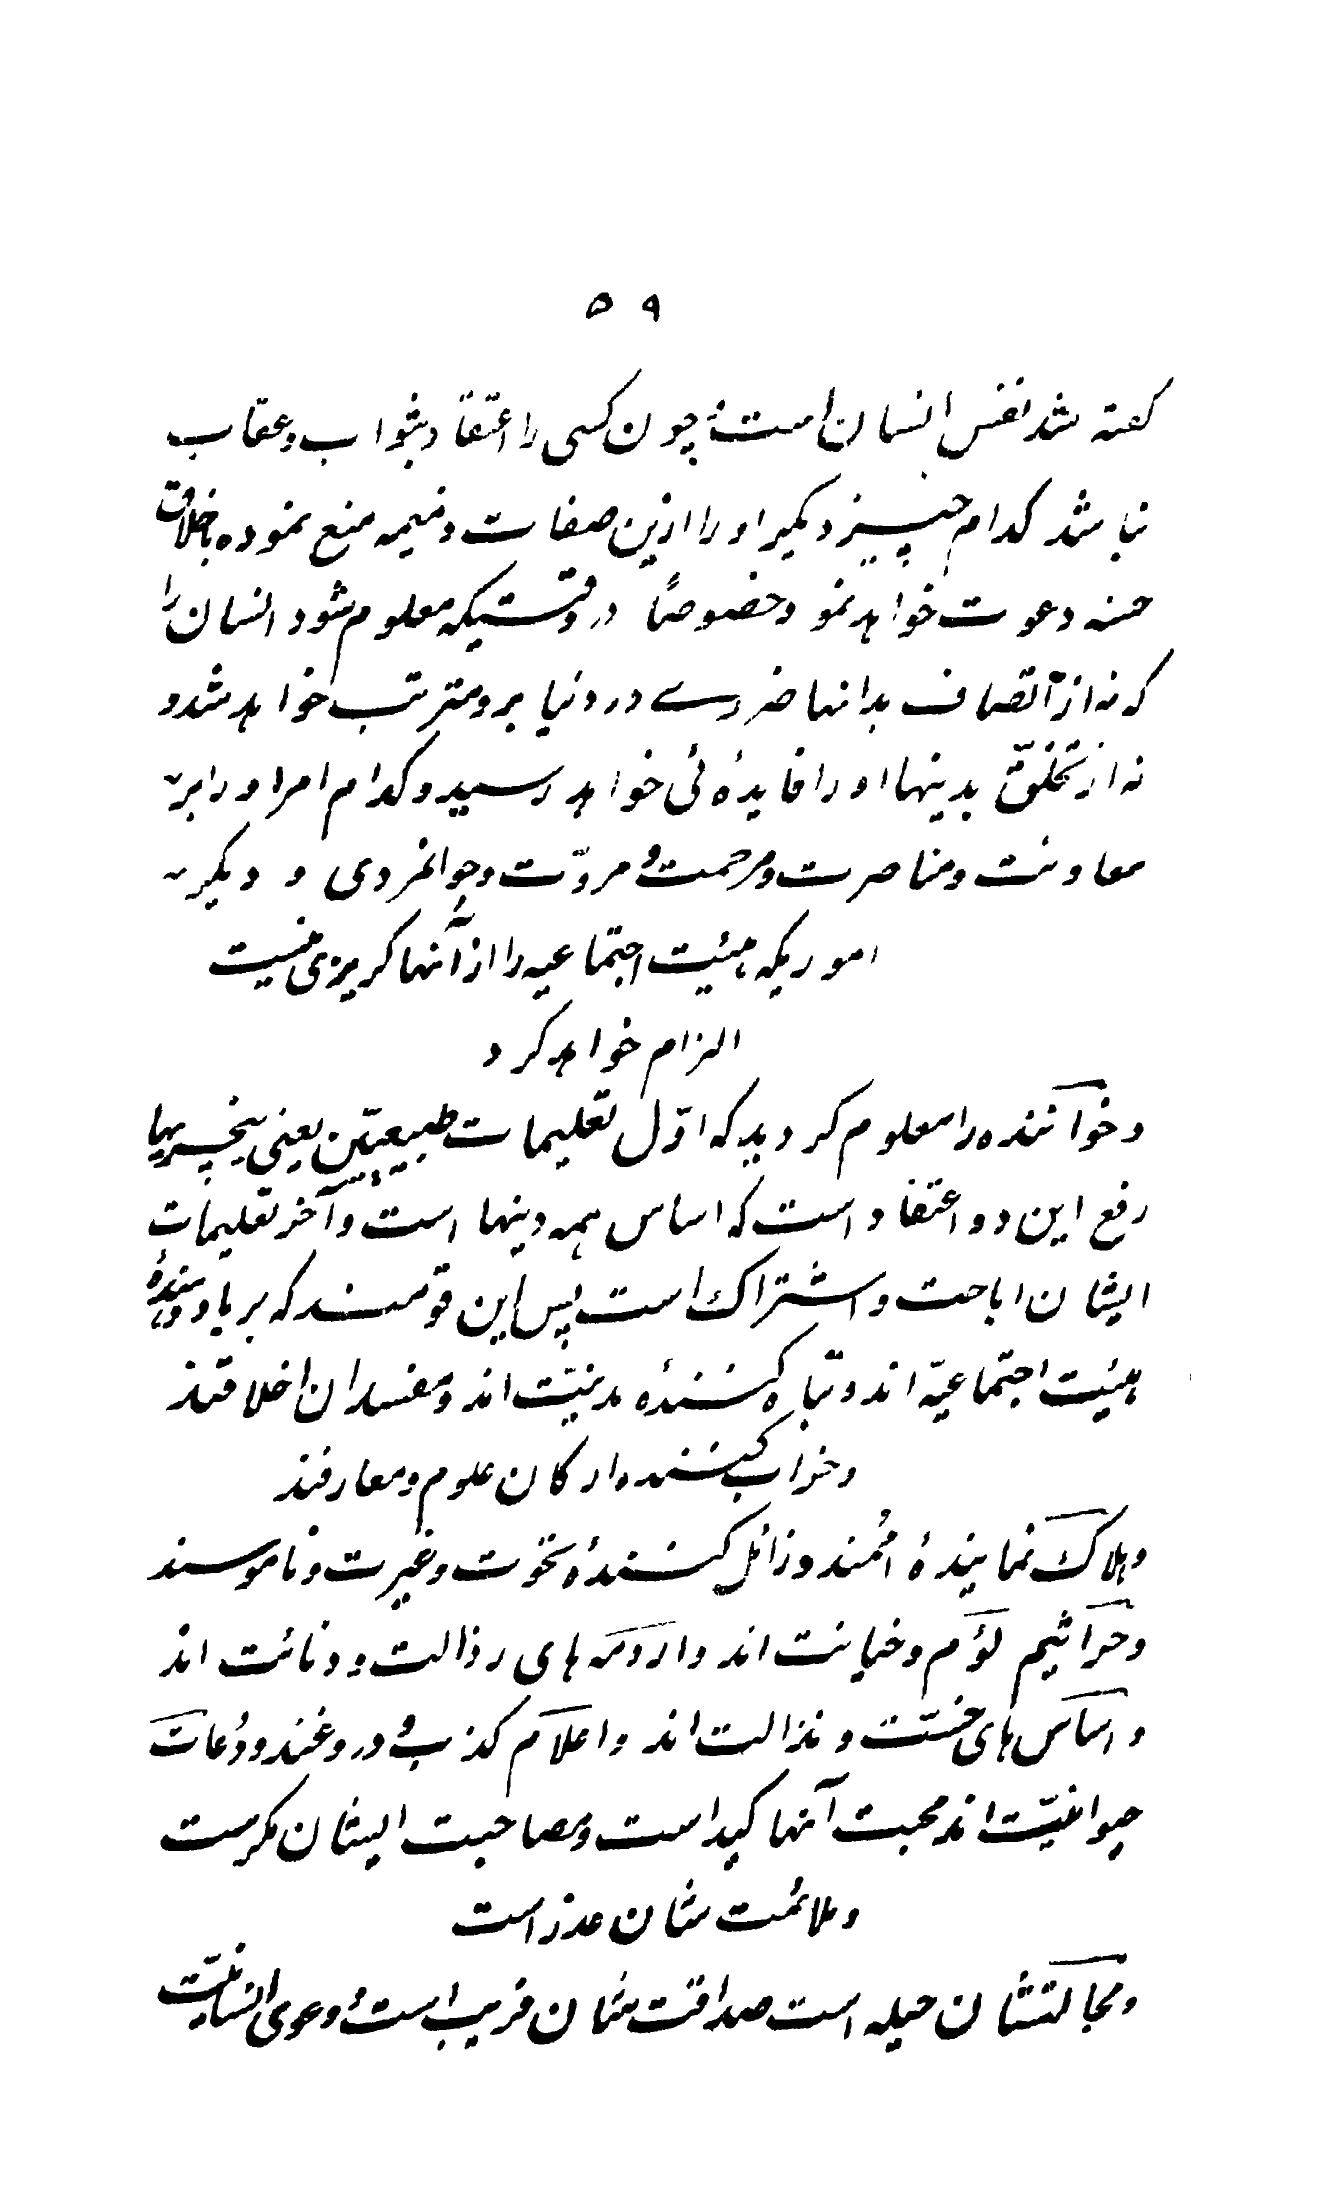 ۵۹
گفته شد نفس انسان است و چون کسی را اعتقاد بثواب و عقاب
نباشد کدام چیز دیگر او را ازین صفات ذمیمه منع نموده باخلاق
حسنه دعوت خواهد نمود خصوصاً در وقتیکه معلوم شود انسان را
که نه از اتصاف بدانها ضررے در دنیا برو مترتب خواهد شد و
نه از تخلّق بدینها او را فایدهٔ ئی خواهد رسید و کدام امر او را بر
معاونت و مناصرت و مرحمت و مروّت و جوانمردی و دیگر
اموریکه هیئت اجتماعیه را از آنها گریزی نیست
الزام خواهد کرد
و خواننده را معلوم گردید که اوّل تعلیمات طبیعیّین یعنی نیچریها
رفع این دو اعتقاد است که اساس همه دینها است و آخر تعلیمات
ایشان اباحت و اشتراک است پس این قومند که برباد دهندهٔ
هیئت اجتماعیّه اند و تباه کنندهٔ مدنیّت اند و مفسدان اخلاقند
و خراب کننده ارکان علوم و معارفند
و هلاک نمایندهٔ اُممند و زائل کنندهٔ نخوت و غیرت و ناموسند
و جراثیم لؤم و خیانت اند و ارومه های رذالت و دنائت اند
و اساس های خسّت و نذالت اند و اعلام کذب و دروغند و دُعات
حیوانیّت اند محبت آنها کید است و مصاحبت ایشان مکرست
و ملائمت شان غدر است
و مجالتشان حیله است صداقت شان فریب است و دعوی انسانیّت